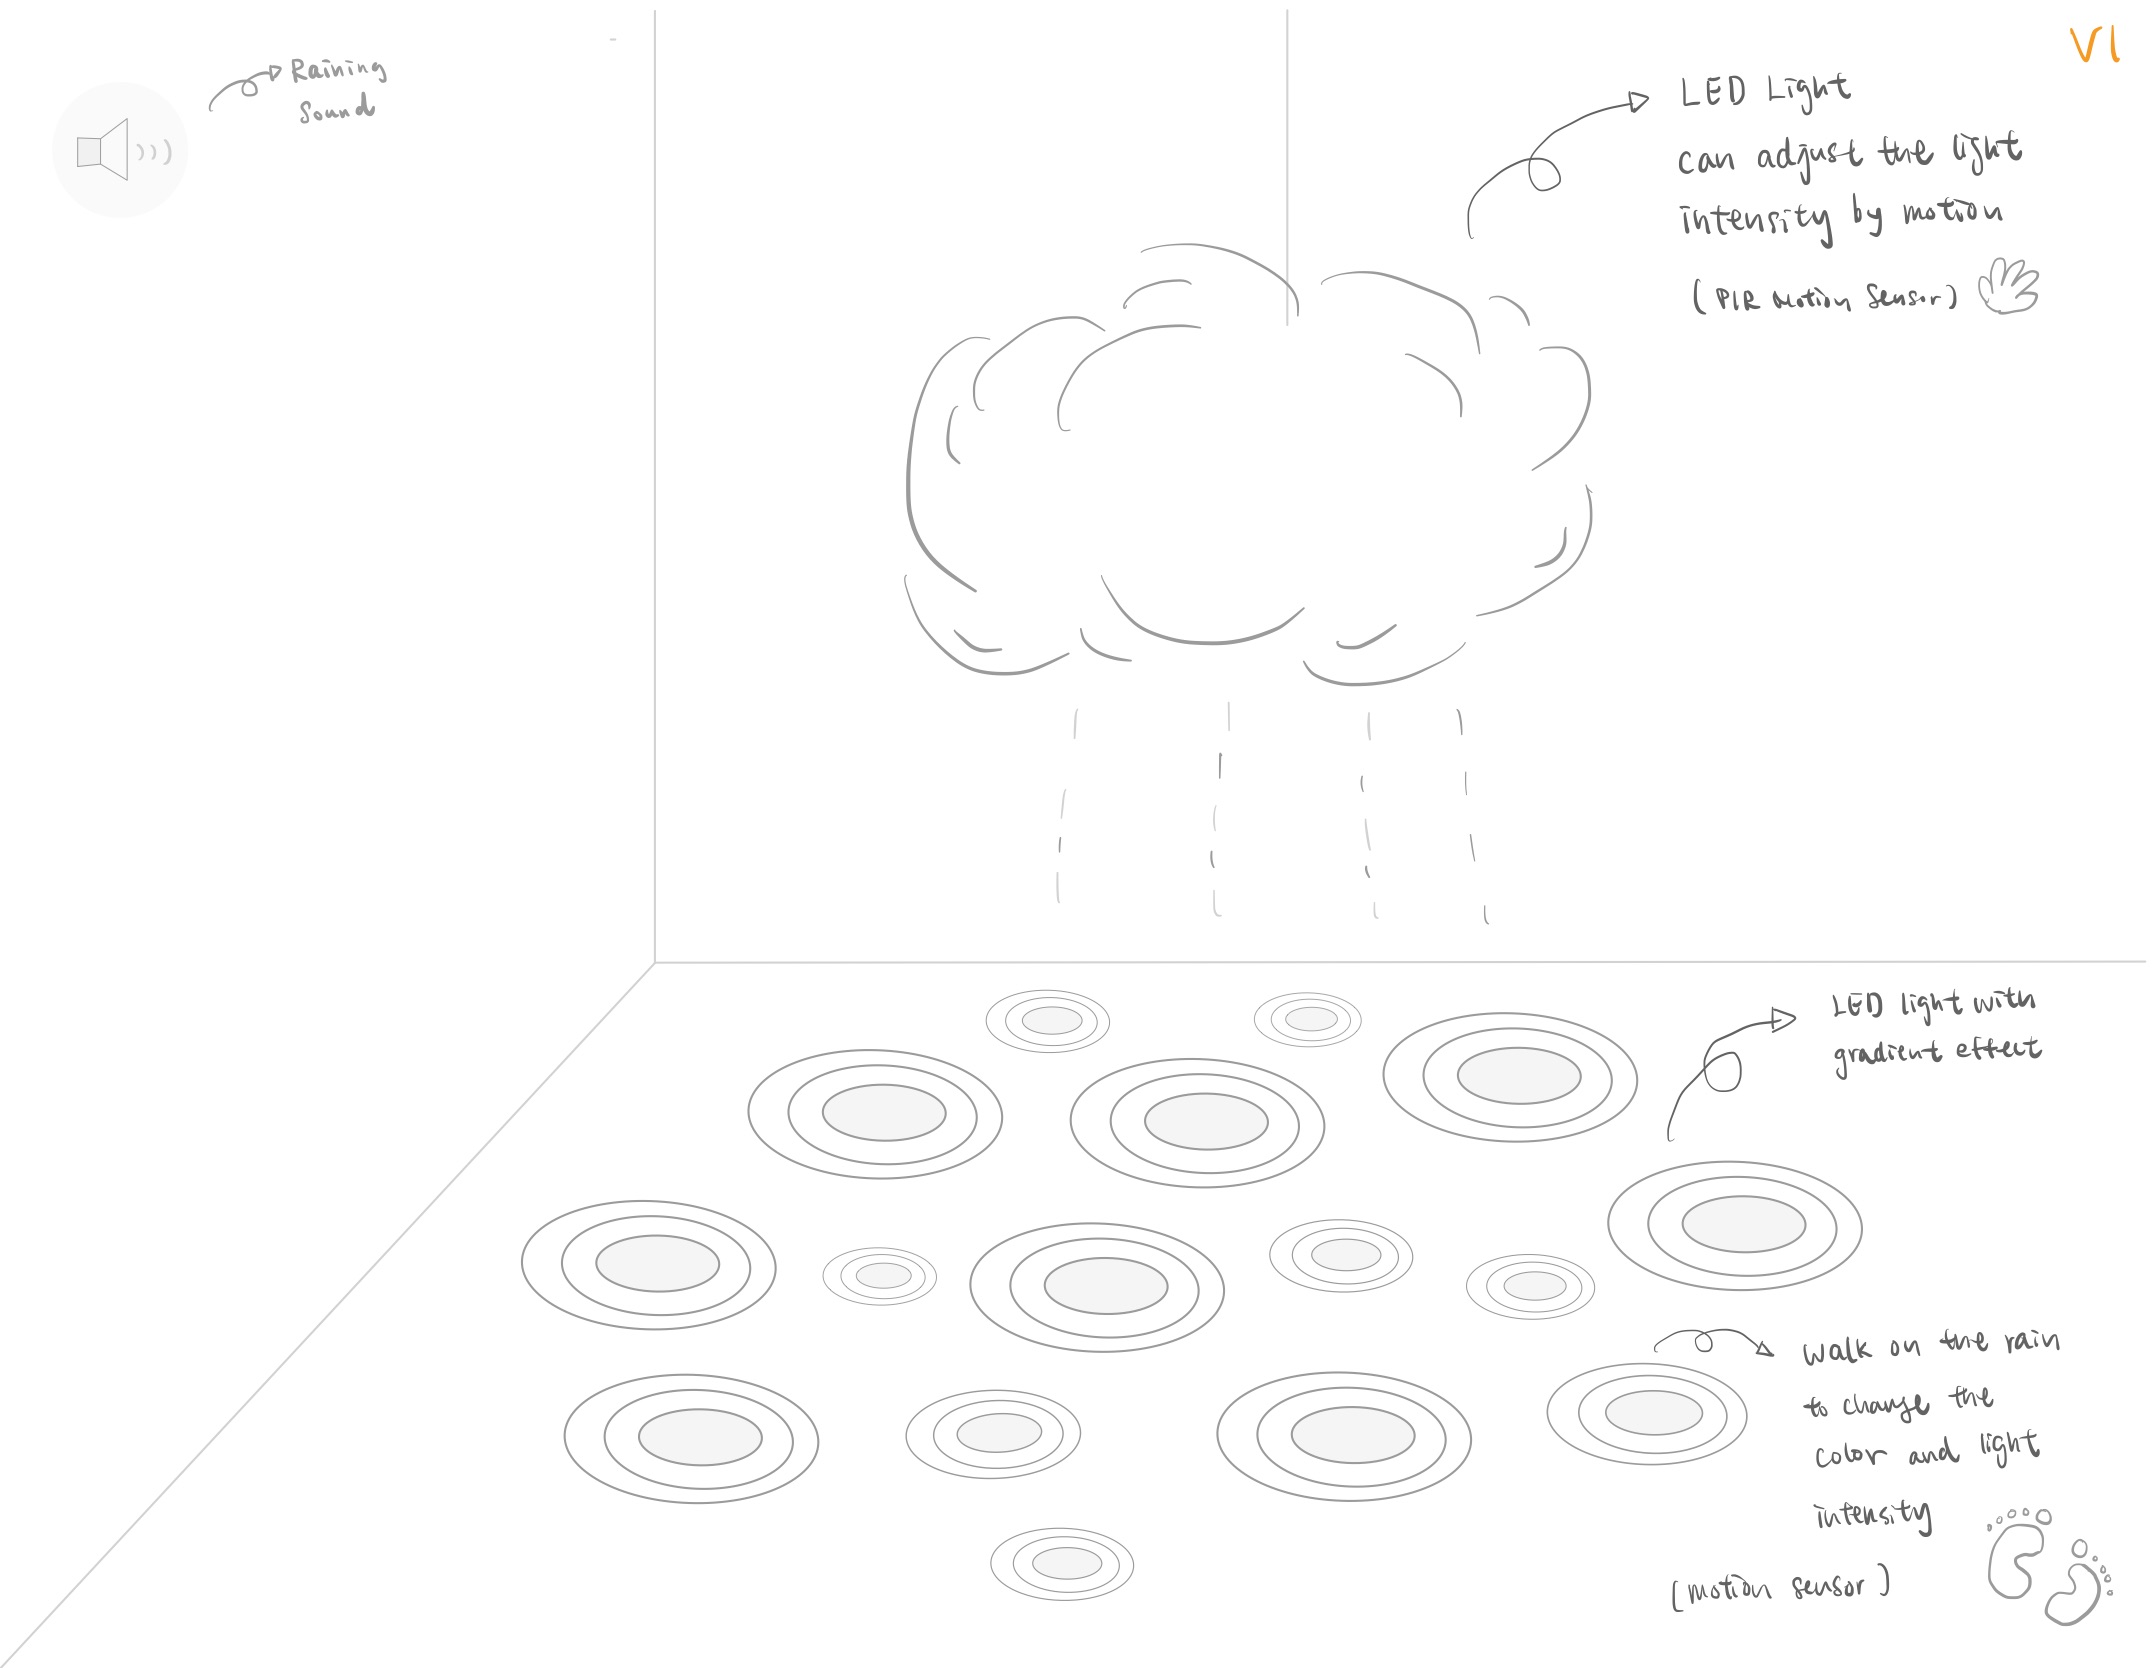 V1
Raining
Sound
LED Light
can adjust the light
intensity by motion
(PIR Motion Sensor)
LED light with
gradient effect
walk on the rain
to change the
color and light
intensity
(motion sensor)